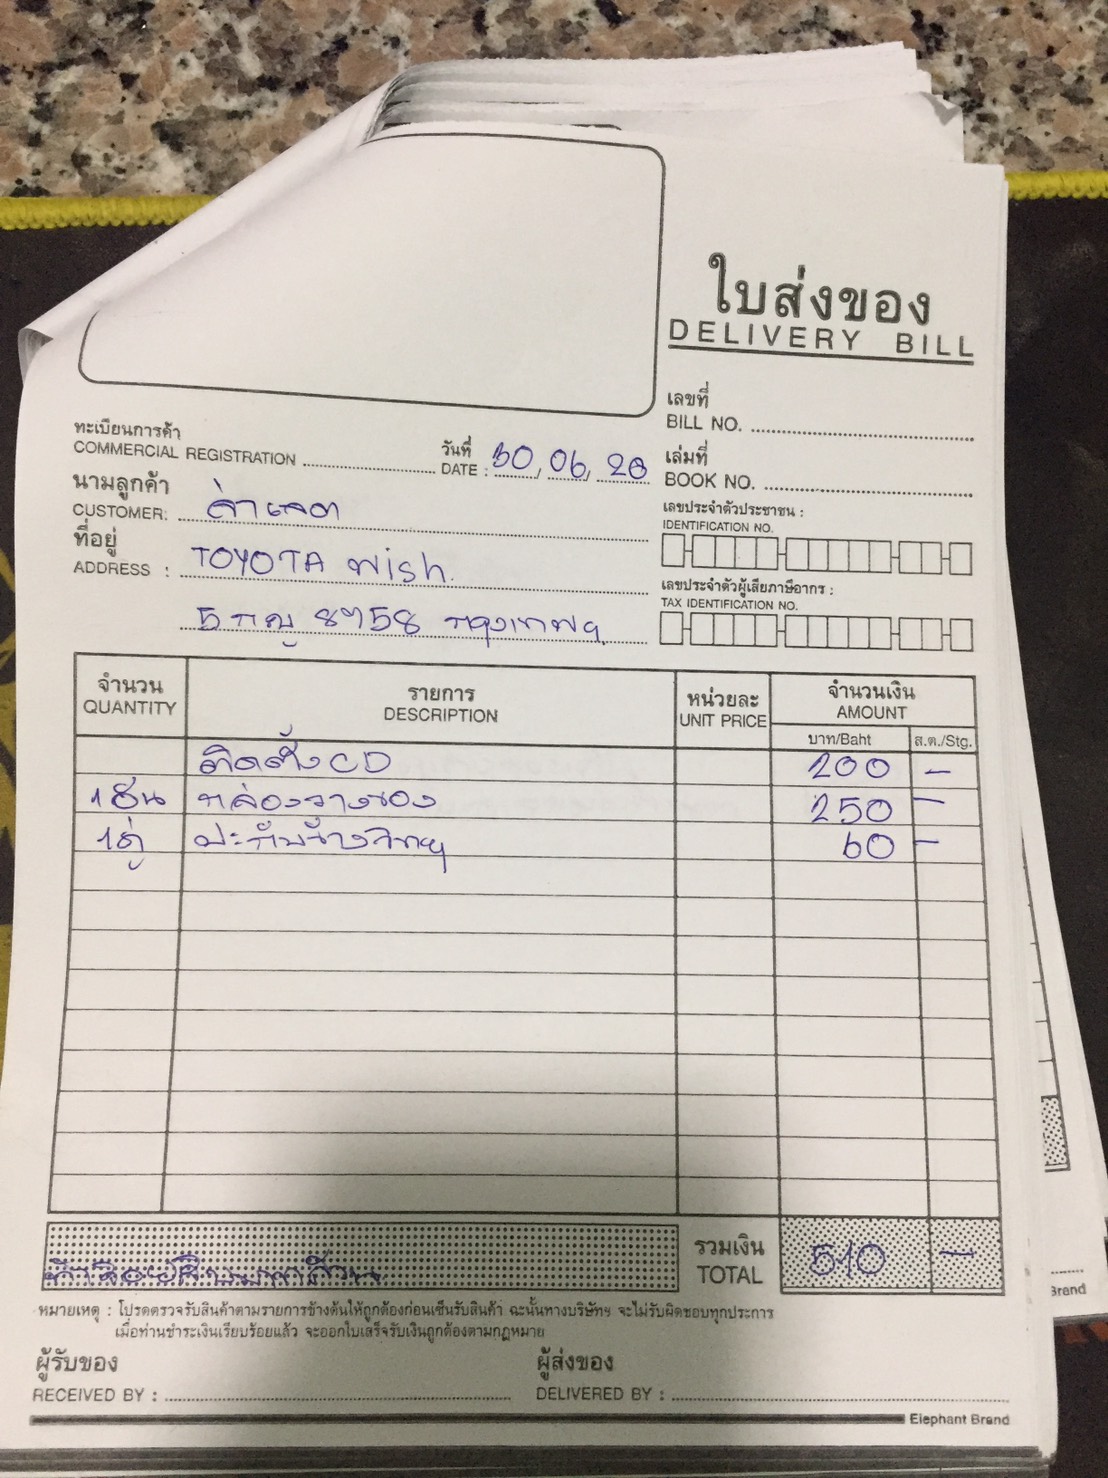 ใบส่งของ
DELIVERY BILL
เลขที่
BILL NO.
ทะเบียนการค้า
COMMERCIAL REGISTRATION
วันที่
DATE : 30, 06, 20
เล่มที่
BOOK NO.
นามลูกค้า
CUSTOMER:
ที่อยู่
ADDRESS : TOYOTA Wish.
5 กญ 8758 กรุงเทพฯ
เลขประจำตัวประชาชน :
IDENTIFICATION NO.
เลขประจำตัวผู้เสียภาษีอากร :
TAX IDENTIFICATION NO.
จำนวน รายการ หน่วยละ จำนวนเงิน
QUANTITY DESCRIPTION UNIT PRICE AMOUNT
บาท/Baht ส.ต./Stg.
ติดตั้ง CD 200 -
1 อัน กล่องวางของ 250 -
1 คู่ ปะกับข้างวิทยุ 60 -
รวมเงิน
TOTAL 510 -
ห้าร้อยสิบบาทถ้วน
หมายเหตุ : โปรดตรวจรับสินค้าตามรายการข้างต้นให้ถูกต้องก่อนเซ็นรับสินค้า ฉะนั้นทางบริษัทฯ จะไม่รับผิดชอบทุกประการ
เมื่อท่านชำระเงินเรียบร้อยแล้ว จะออกใบเสร็จรับเงินถูกต้องตามกฎหมาย
ผู้รับของ
RECEIVED BY :
ผู้ส่งของ
DELIVERED BY :
Elephant Brand
Brand